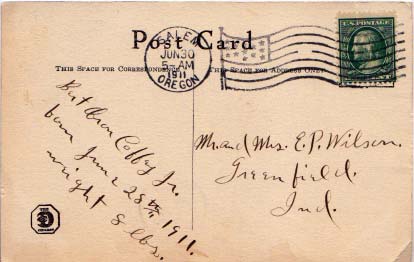 Post Card
SALEM
JUN 30
5-AM
1911
OREGON
U.S. POSTAGE
THIS SPACE FOR CORRESPONDENCE
THIS SPACE FOR ADDRESS ONLY
Coffey Jr.
born June 28th 1911.
weight 8 lbs.
Mr. and Mrs. E. P. Wilson.
Greenfield.
Ind.